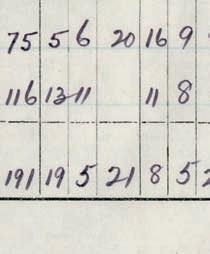 75 5 6 20 16 9
116 13 11 11 8
191 19 5 21 8 5